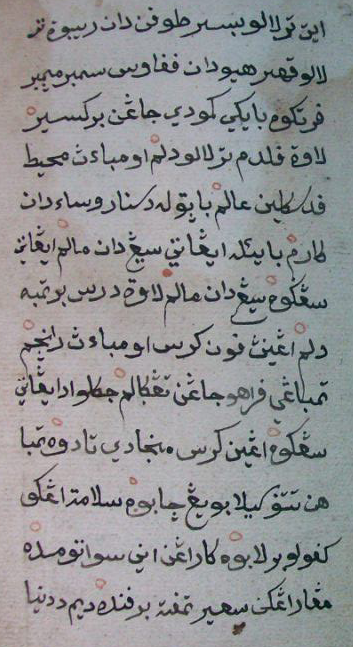 اين تر لالو بسر طوفن دان ريبوة تر
لالو قهر هيو دان ففاوس سمبر ميمبر
فرتكوه بايكي كمودي جاغن بركسير
لاوة قلدم تر لالو دلم اومباءث محيط
فد سكلين عالم بايق له دسنا روساء دان
كارم بايكله ايڠاتي سيڠ دان مالم ايڠاتي
سڠكوه سيڠ دان مالم لاوة درس برتمبه
دلم اڠينث فون كرس اومباءث رنچم
تمباڠي فراهو جاڠن تڠكالم جكلو ادايڠاتي
سڠكوه اڠين كرس منجادي تادوه تمبا
هن تتف كيلا بويڠ چابوه سلامة اڠكو
كفولو برلابوه كاراڠن ايني سواتو مده
مڠاراڠكن سعير تمفة برفنده ديم ددنيا